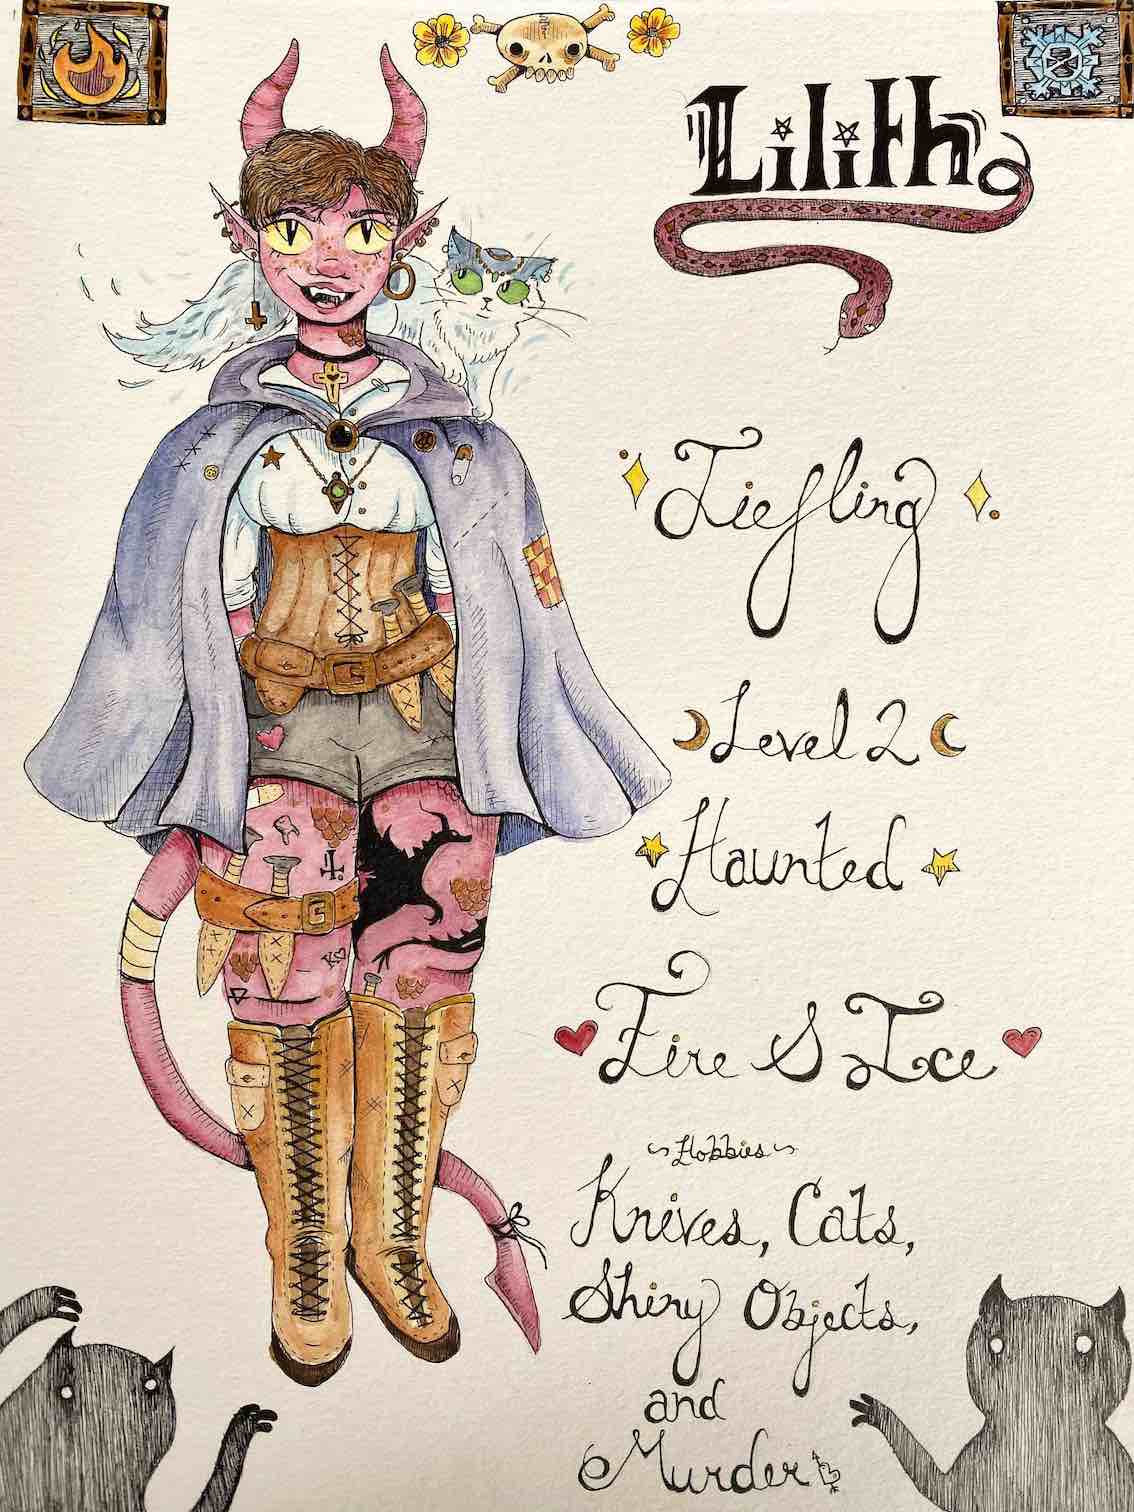 Lilith
Tiefling
Level 2
Haunted
Fire & Ice
~Hobbies~
Knives, Cats,
Shiny Objects,
and
Murder